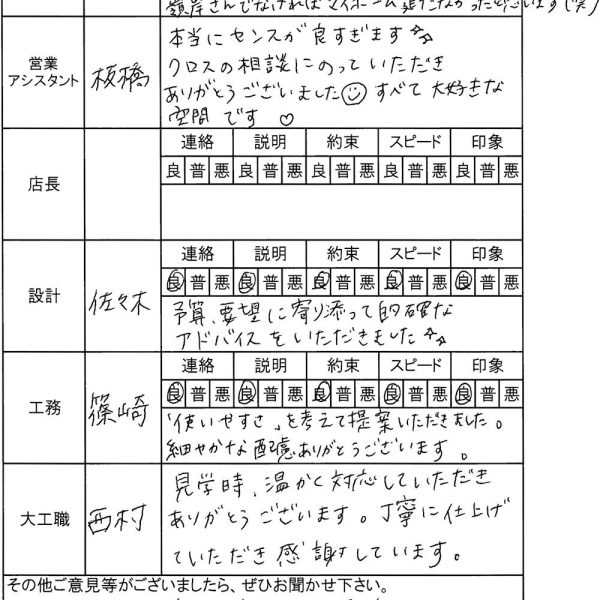 嶺岸さんでなければマイホーム建てなかったと思います(笑)
営業
アシスタント
板橋
本当にセンスが良すぎます☆☆
クロスの相談にのっていただき
ありがとうございました☺すべて大好きな
空間です♡
店長
連絡 説明 約束 スピード 印象
良 普 悪 良 普 悪 良 普 悪 良 普 悪 良 普 悪
設計
佐々木
連絡 説明 約束 スピード 印象
良 普 悪 良 普 悪 良 普 悪 良 普 悪 良 普 悪
予算、要望に寄り添って的確な
アドバイスをいただきました☆☆
工務
篠崎
連絡 説明 約束 スピード 印象
良 普 悪 良 普 悪 良 普 悪 良 普 悪 良 普 悪
"使いやすさ"を考えて提案いただきました。
細やかな配慮ありがとうございます。
大工職
西村
見学時、温かく対応していただき
ありがとうございます。丁寧に仕上げ
ていただき感謝しています。
その他ご意見等がございましたら、ぜひお聞かせ下さい。